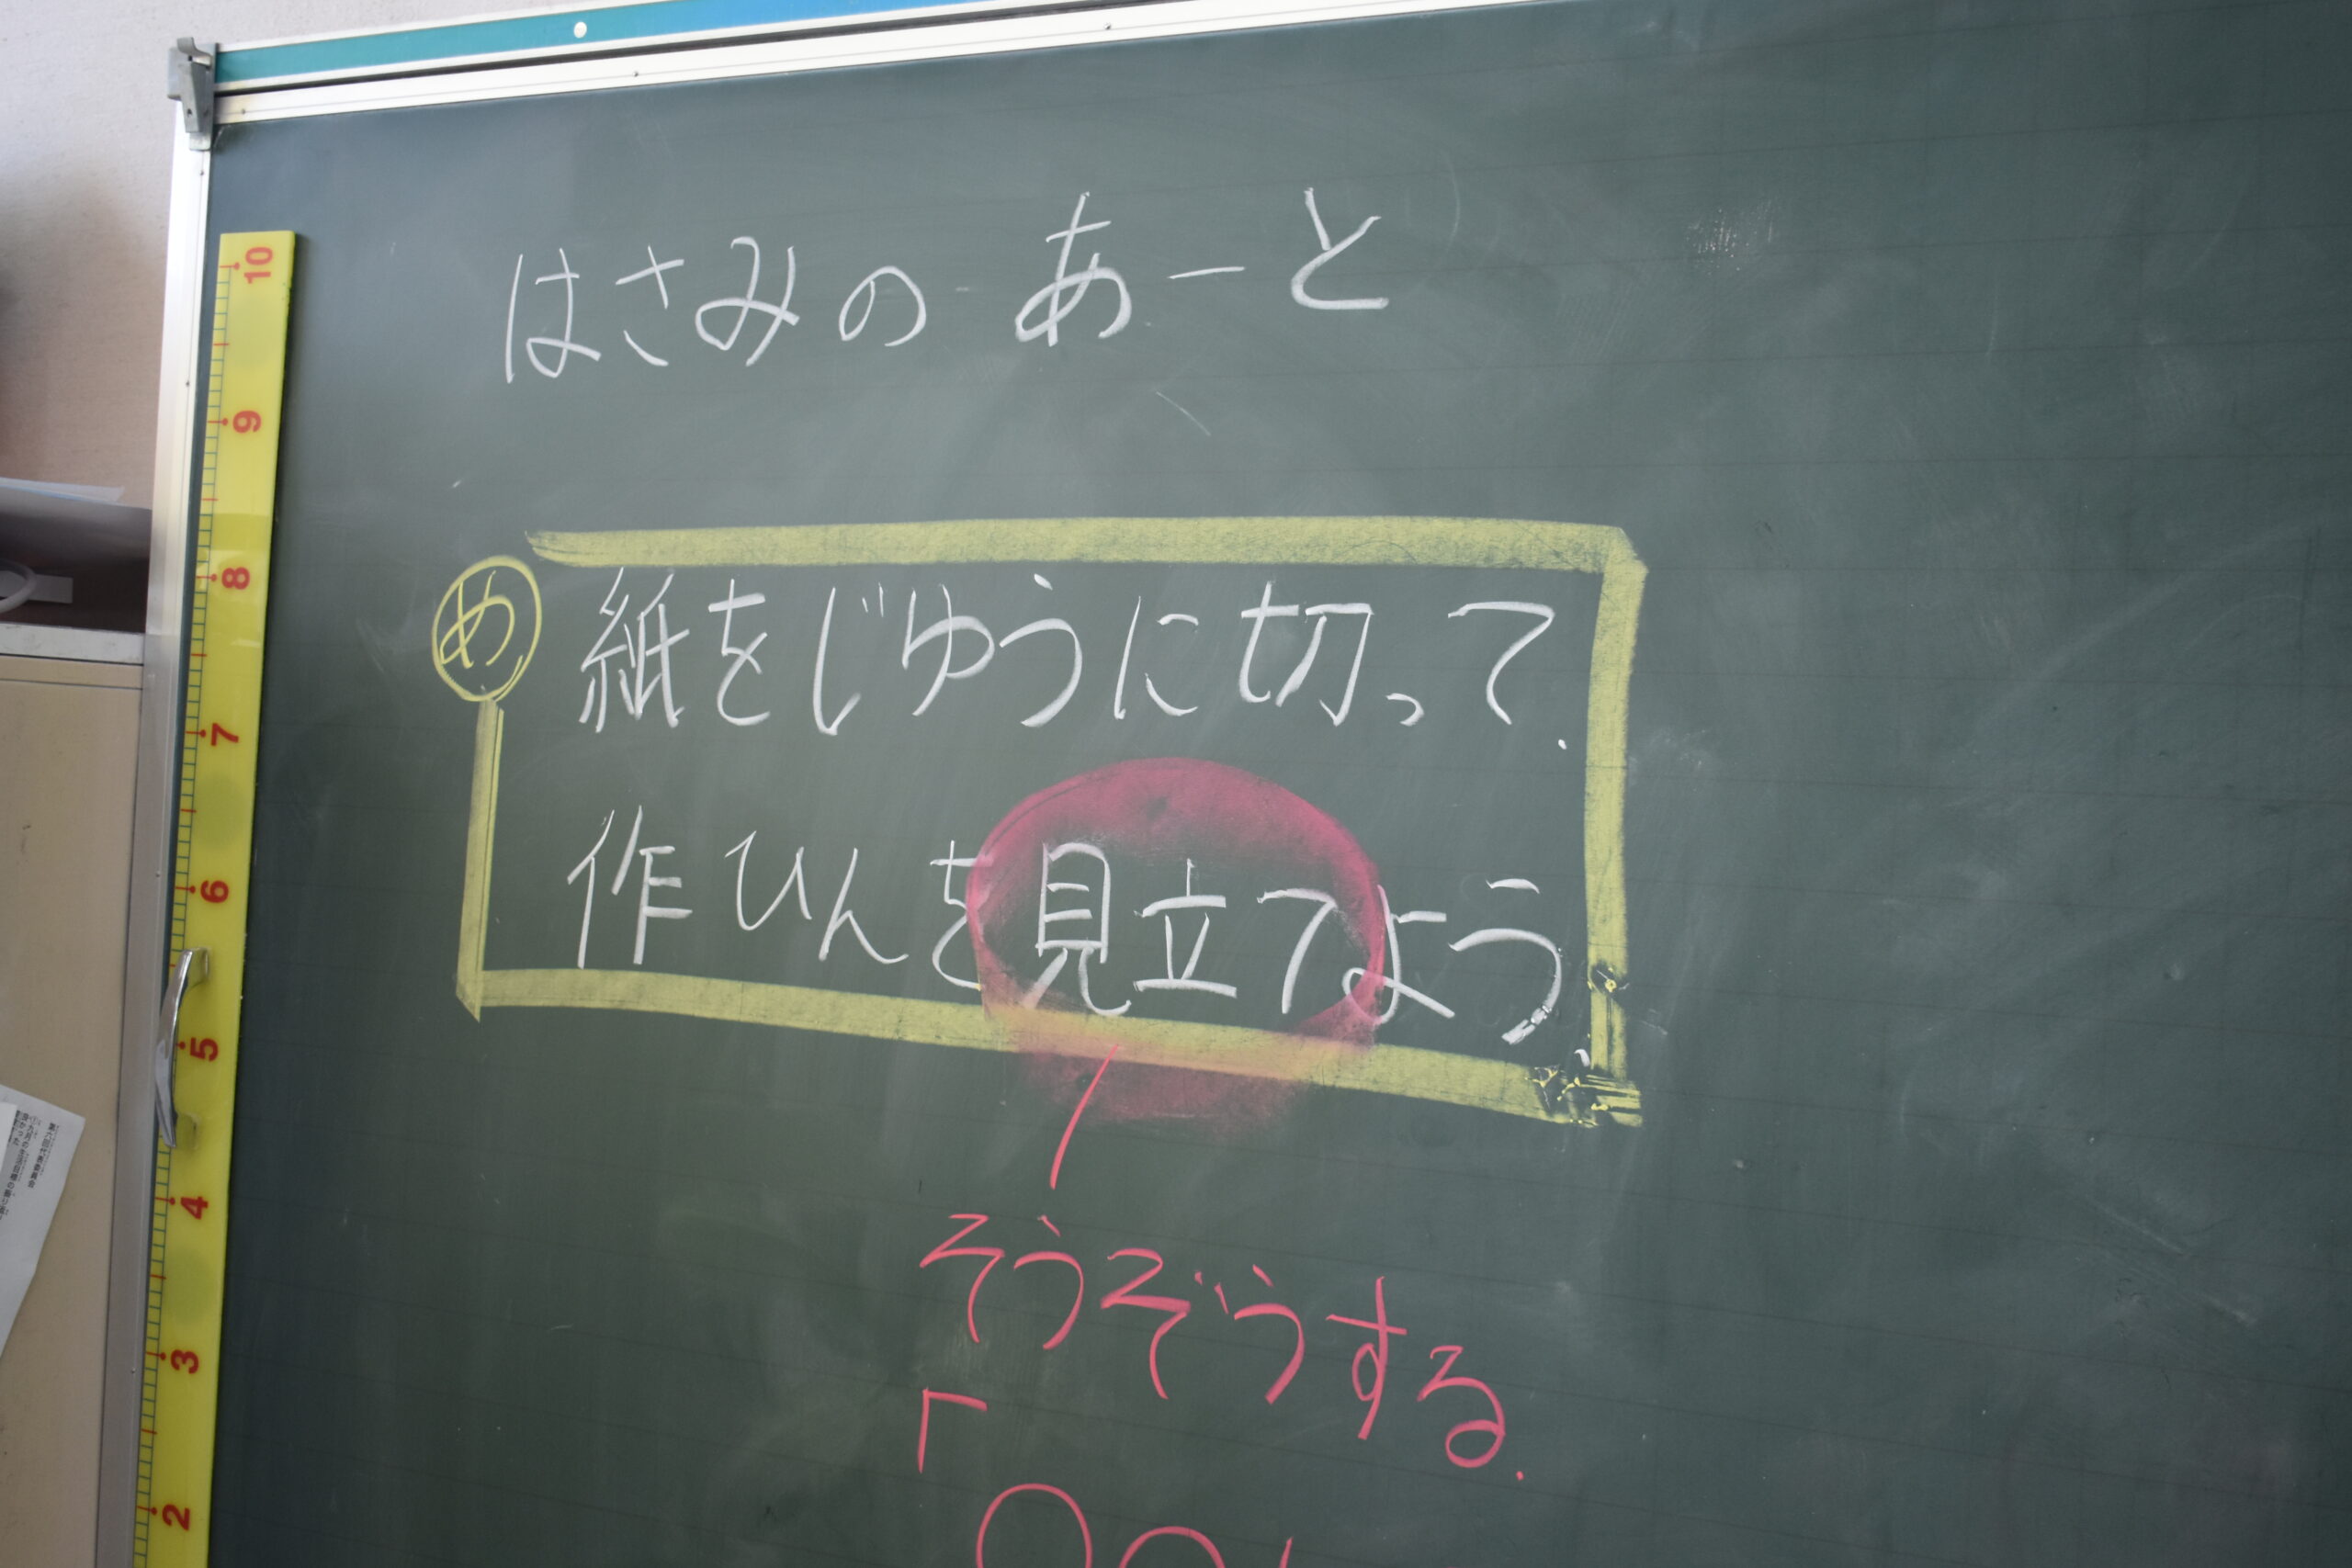 はさみの あーと
め
紙をじゆうに切って.
作ひんを見立てよう.
そうぞうする.
「
10
9
8
7
6
5
4
3
2